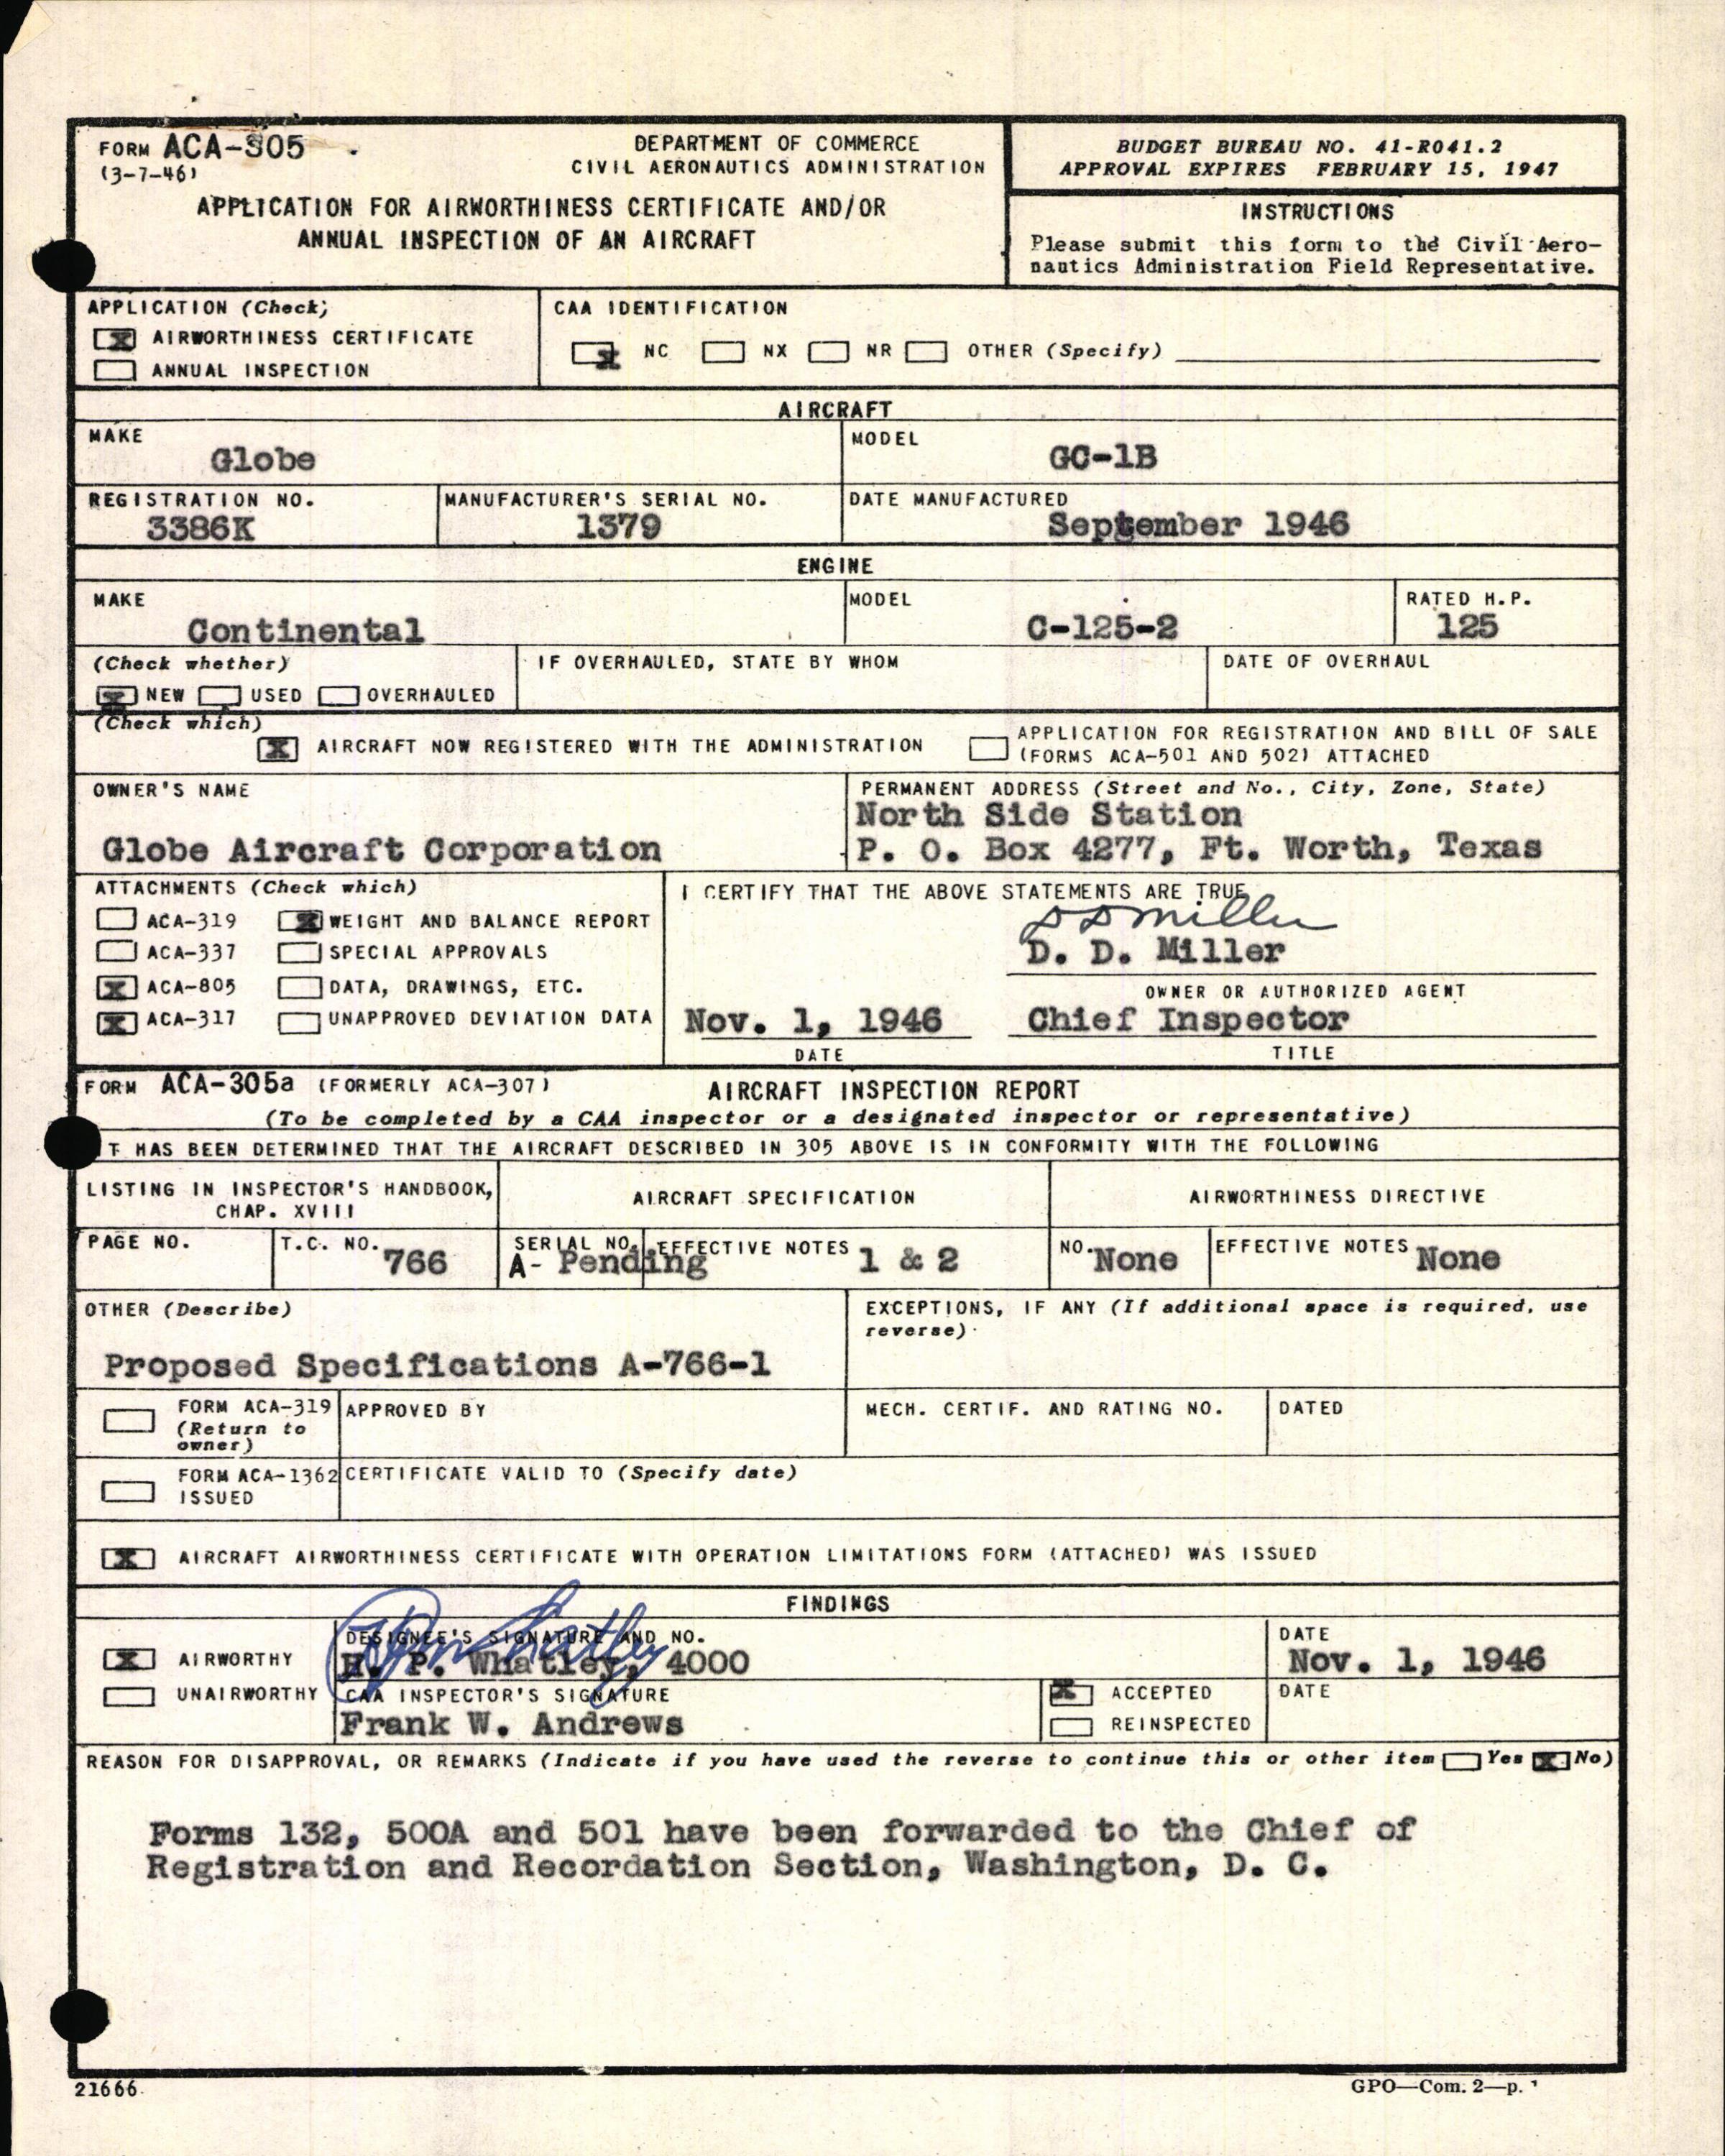 FORM ACA-305
(3-7-46)
DEPARTMENT OF COMMERCE
CIVIL AERONAUTICS ADMINISTRATION
APPLICATION FOR AIRWORTHINESS CERTIFICATE AND/OR
ANNUAL INSPECTION OF AN AIRCRAFT
BUDGET BUREAU NO. 41-R041.2
APPROVAL EXPIRES FEBRUARY 15, 1947
INSTRUCTIONS
Please submit this form to the Civil Aero-
nautics Administration Field Representative.
APPLICATION (Check)
X AIRWORTHINESS CERTIFICATE
ANNUAL INSPECTION
CAA IDENTIFICATION
X NC NX NR OTHER (Specify)
AIRCRAFT
MAKE
Globe
MODEL
GC-1B
REGISTRATION NO.
3386K
MANUFACTURER'S SERIAL NO.
1379
DATE MANUFACTURED
September 1946
ENGINE
MAKE
Continental
MODEL
C-125-2
RATED H.P.
125
(Check whether)
X NEW USED OVERHAULED
IF OVERHAULED, STATE BY WHOM
DATE OF OVERHAUL
(Check which)
X AIRCRAFT NOW REGISTERED WITH THE ADMINISTRATION
APPLICATION FOR REGISTRATION AND BILL OF SALE
(FORMS ACA-501 AND 502) ATTACHED
OWNER'S NAME
Globe Aircraft Corporation
PERMANENT ADDRESS (Street and No., City, Zone, State)
North Side Station
P. O. Box 4277, Ft. Worth, Texas
ATTACHMENTS (Check which)
ACA-319 X WEIGHT AND BALANCE REPORT
ACA-337 SPECIAL APPROVALS
X ACA-805 DATA, DRAWINGS, ETC.
X ACA-317 UNAPPROVED DEVIATION DATA
I CERTIFY THAT THE ABOVE STATEMENTS ARE TRUE
D D Miller
D. D. Miller
OWNER OR AUTHORIZED AGENT
Nov. 1, 1946 Chief Inspector
DATE TITLE
FORM ACA-305a (FORMERLY ACA-307) AIRCRAFT INSPECTION REPORT
(To be completed by a CAA inspector or a designated inspector or representative)
T HAS BEEN DETERMINED THAT THE AIRCRAFT DESCRIBED IN 305 ABOVE IS IN CONFORMITY WITH THE FOLLOWING
LISTING IN INSPECTOR'S HANDBOOK,
CHAP. XVIII
AIRCRAFT SPECIFICATION
AIRWORTHINESS DIRECTIVE
PAGE NO.
T.C. NO. 766
SERIAL NO.
A- Pending
EFFECTIVE NOTES 1 & 2
NO. None
EFFECTIVE NOTES None
OTHER (Describe)
Proposed Specifications A-766-1
EXCEPTIONS, IF ANY (If additional space is required, use
reverse)
FORM ACA-319
(Return to
owner)
APPROVED BY
MECH. CERTIF. AND RATING NO.
DATED
FORM ACA-1362
ISSUED
CERTIFICATE VALID TO (Specify date)
X AIRCRAFT AIRWORTHINESS CERTIFICATE WITH OPERATION LIMITATIONS FORM (ATTACHED) WAS ISSUED
FINDINGS
X AIRWORTHY
UNAIRWORTHY
DESIGNEE'S SIGNATURE AND NO.
HP Whatley
H. P. Whatley, 4000
DATE
Nov. 1, 1946
CAA INSPECTOR'S SIGNATURE
Frank W. Andrews
X ACCEPTED
REINSPECTED
DATE
REASON FOR DISAPPROVAL, OR REMARKS (Indicate if you have used the reverse to continue this or other item Yes X No)
Forms 132, 500A and 501 have been forwarded to the Chief of
Registration and Recordation Section, Washington, D. C.
21666
GPO—Com. 2—p.